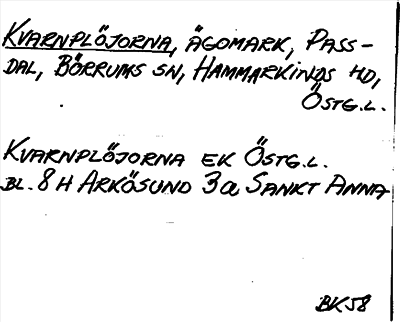 KVARNPLÖJORNA, ÄGOMARK, PASS-
DAL, BÖRRUMS SN, HAMMARKINDS HD,
ÖSTG.L.
KVARNPLÖJORNA EK ÖSTG.L.
BL. 8 H ARKÖSUND 3a SANKT ANNA
BK58